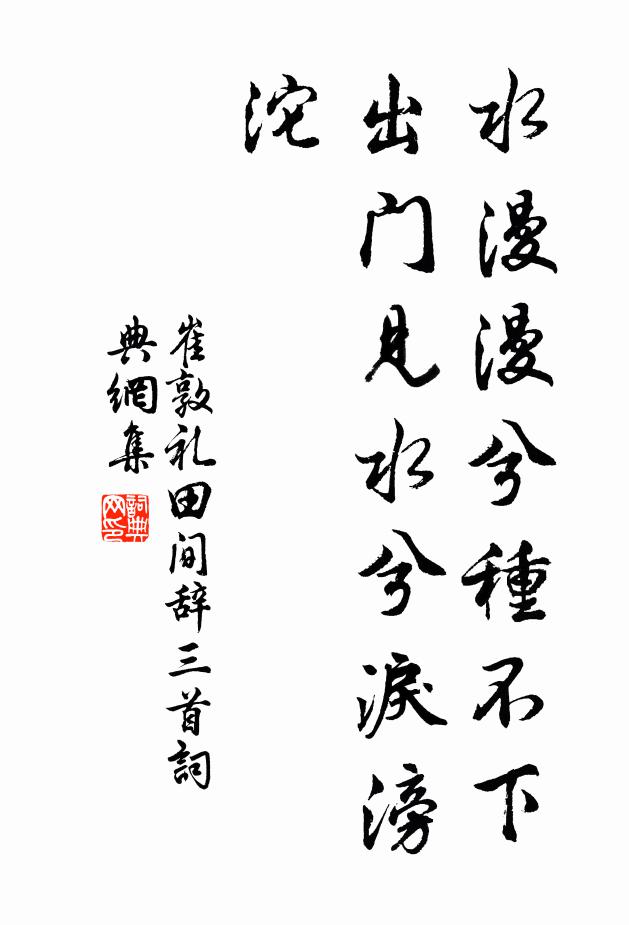 水漫漫兮種不下
出门見水兮淚滂
沱
崔敦礼田间辞三首詞
典網集
詞典网印